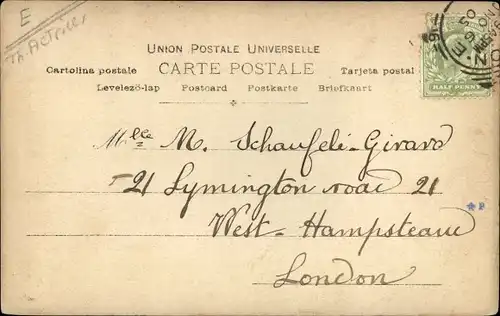 E
Th. Actrices
UNION POSTALE UNIVERSELLE
CARTE POSTALE
Cartolina postale
Tarjeta postal
Levelező-lap Postcard Postkarte Briefkaart
HALF PENNY
Mlle M. Schaufelé-Girard
21 Lymington road 21
West-Hampsteam
London